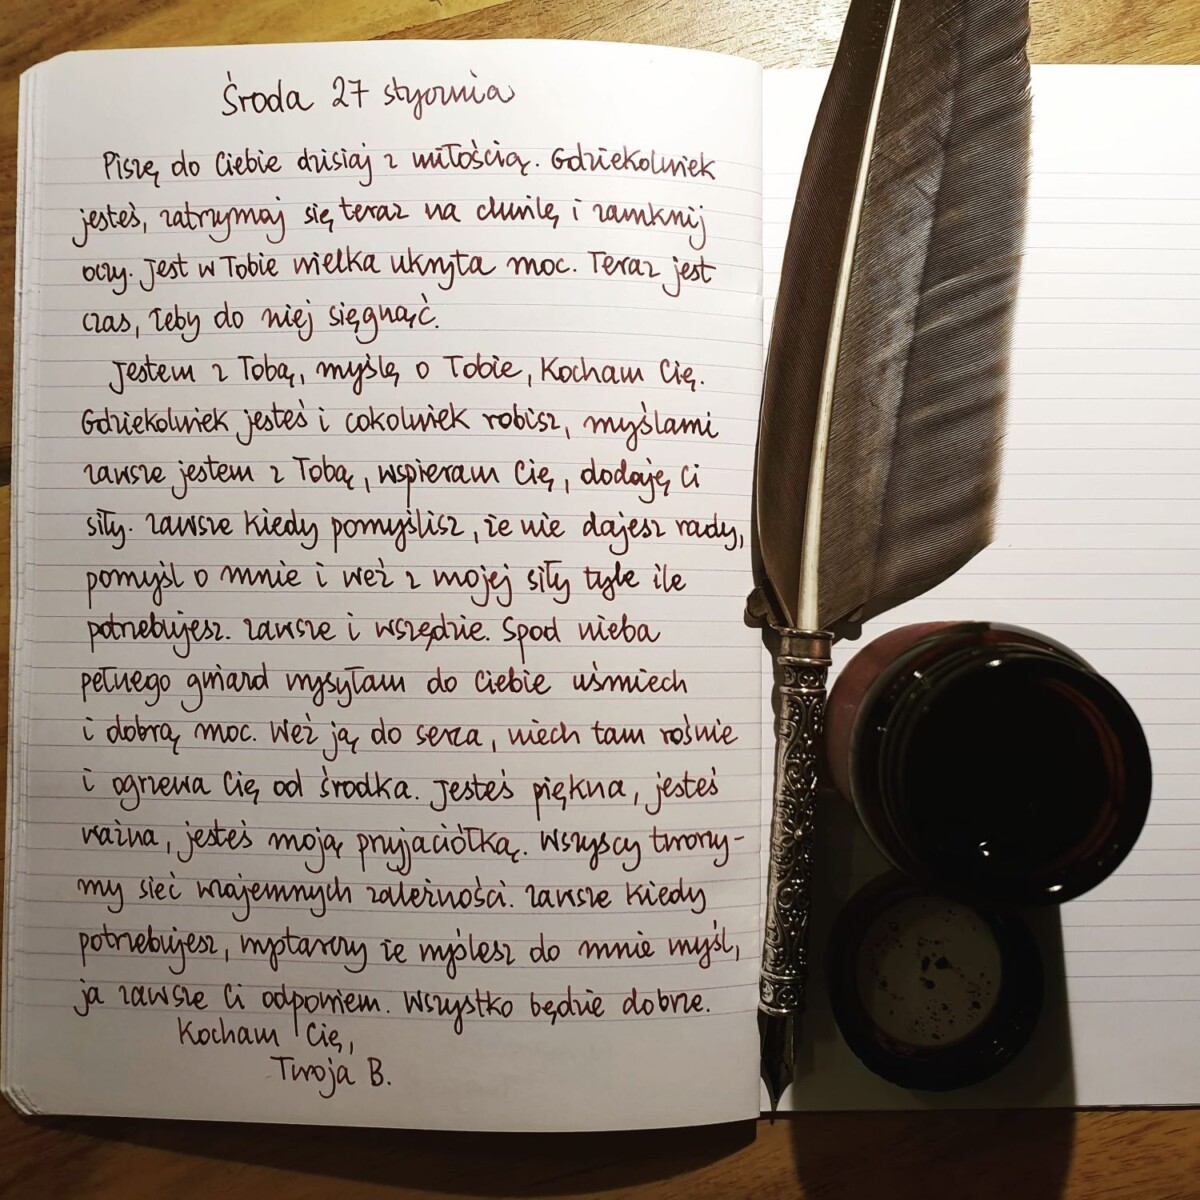 Środa 27 stycznia
Piszę do Ciebie dzisiaj z miłością. Gdziekolwiek
jesteś, zatrzymaj się teraz na chwilę i zamknij
oczy. Jest w Tobie wielka ukryta moc. Teraz jest
czas, żeby do niej sięgnąć.
Jestem z Tobą, myślę o Tobie, Kocham Cię.
Gdziekolwiek jesteś i cokolwiek robisz, myślami
zawsze jestem z Tobą, wspieram Cię, dodaję Ci
siły. Zawsze kiedy pomyślisz, że nie dajesz rady,
pomyśl o mnie i weź z mojej siły tyle ile
potrzebujesz. Zawsze i wszędzie. Spod nieba
pełnego gwiazd wysyłam do Ciebie uśmiech
i dobrą moc. Weź ją do serca, niech tam rośnie
i ogrzewa Cię od środka. Jesteś piękna, jesteś
ważna, jesteś moją przyjaciółką. Wszyscy tworzy-
my sieć wzajemnych zależności. Zawsze kiedy
potrzebujesz, wyptarczy że myślesz do mnie myśl,
ja zawsze Ci odpowiem. Wszystko będzie dobrze.
Kocham Cię,
Twoja B.